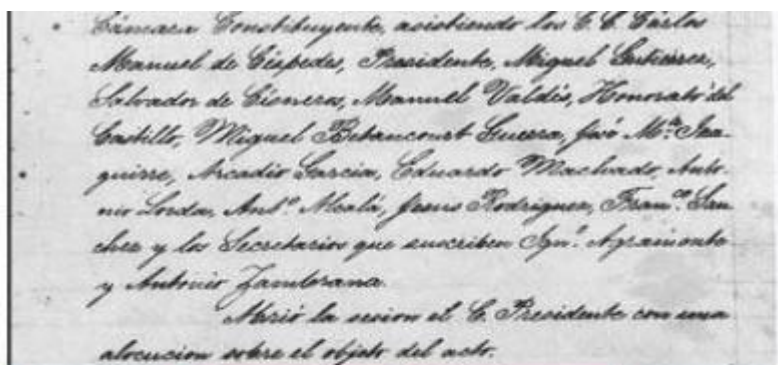 Cámara Constituyente, asistiendo los C. C. Cárlos
Manuel de Céspedes, Presidente, Miguel Gutierrez,
Salvador de Cisneros, Manuel Valdés, Honorato del
Castillo, Miguel Betancourt Guerra, José Mª. Iza-
guirre, Arcadio García, Eduardo Machado, Anto-
nio Lorda, Antº. Alcalá, Jesus Rodriguez, Franco. San
chez y los Secretarios que suscriben Ignº. Agramonte
y Antonio Zambrana.
Abrió la sesion el C. Presidente con una
alocucion sobre el objeto del acto.